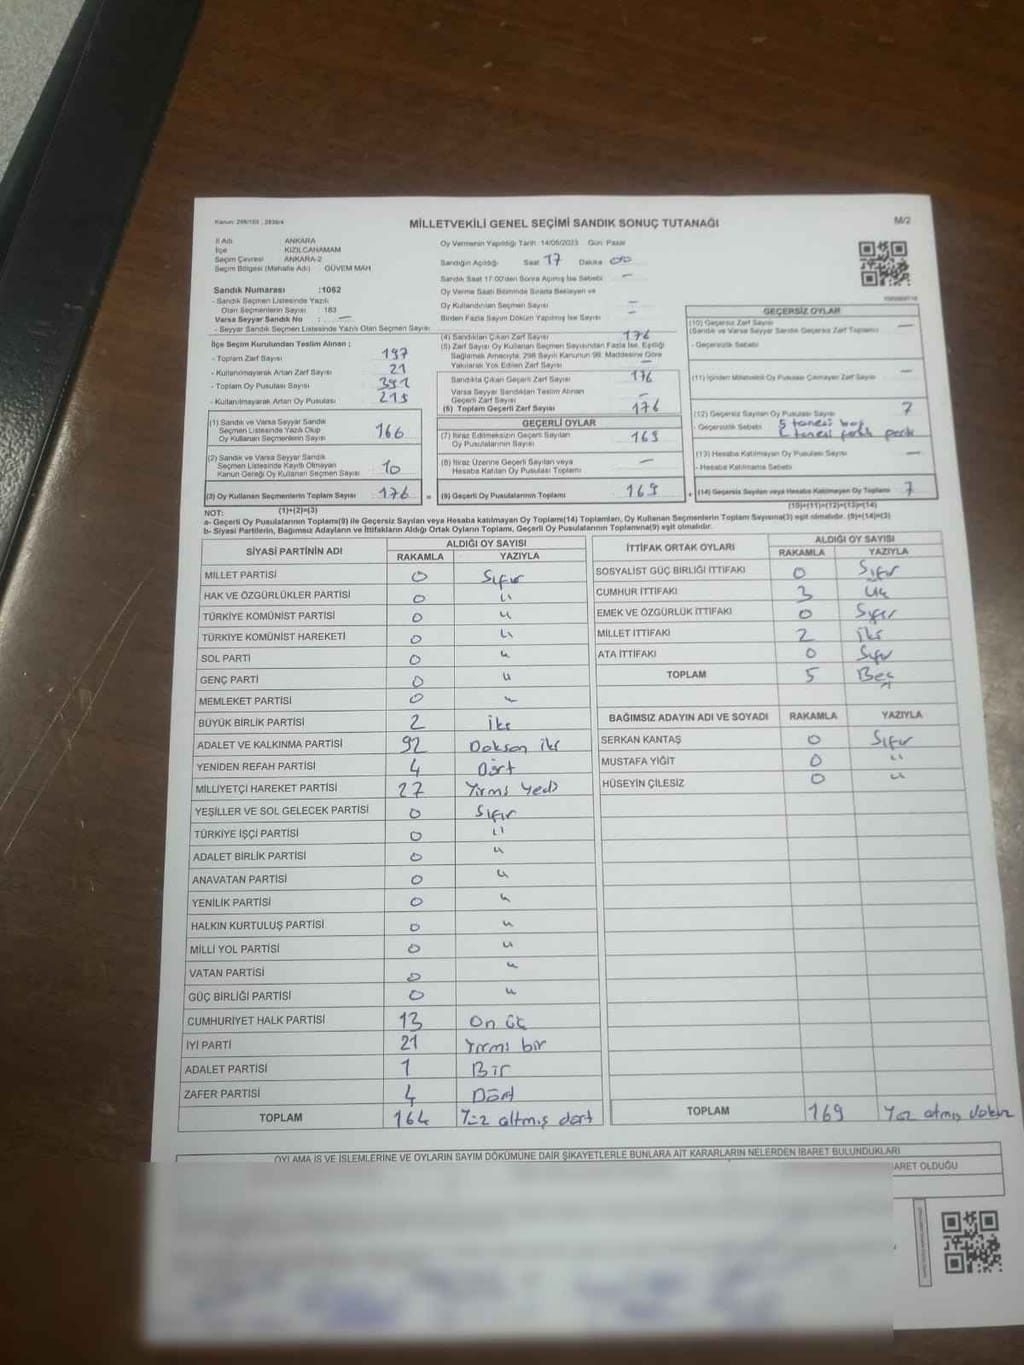 Kanun: 298/105 , 2839/4
MİLLETVEKİLİ GENEL SEÇİMİ SANDIK SONUÇ TUTANAĞI
M/2
İl Adı : ANKARA
İlçe : KIZILCAHAMAM
Seçim Çevresi : ANKARA-2
Seçim Bölgesi (Mahalle Adı) : GÜVEM MAH
Sandık Numarası :1062
- Sandık Seçmen Listesinde Yazılı
Olan Seçmenlerin Sayısı : 183
Varsa Seyyar Sandık No : —
- Seyyar Sandık Seçmen Listesinde Yazılı Olan Seçmen Sayısı :
Oy Vermenin Yapıldığı Tarih :14/05/2023 Gün: Pazar
Sandığın Açıldığı Saat 17 Dakika 00
Sandık Saat 17:00'den Sonra Açılmış İse Sebebi —
Oy Verme Saati Bitiminde Sırada Bekleyen ve
Oy Kullandırılan Seçmen Sayısı —
Birden Fazla Sayım Döküm Yapılmış İse Sayısı —
İlçe Seçim Kurulundan Teslim Alınan ;
- Toplam Zarf Sayısı 197
- Kullanılmayarak Artan Zarf Sayısı 21
- Toplam Oy Pusulası Sayısı
- Kullanılmayarak Artan Oy Pusulası 215
(1) Sandık ve Varsa Seyyar Sandık
Seçmen Listesinde Yazılı Olup
Oy Kullanan Seçmenlerin Sayısı 166
(2) Sandık ve Varsa Seyyar Sandık
Seçmen Listesinde Kayıtlı Olmayan
Kanun Gereği Oy Kullanan Seçmen Sayısı 10
(3) Oy Kullanan Seçmenlerin Toplam Sayısı 176
(1)+(2)=(3)
(4) Sandıktan Çıkan Zarf Sayısı 176
(5) Zarf Sayısı Oy Kullanan Seçmen Sayısından Fazla İse, Eşitliği
Sağlamak Amacıyla, 298 Sayılı Kanunun 98. Maddesine Göre
Yakılarak Yok Edilen Zarf Sayısı —
Sandıkta Çıkan Geçerli Zarf Sayısı 176
Varsa Seyyar Sandıktan Teslim Alınan
Geçerli Zarf Sayısı —
(6) Toplam Geçerli Zarf Sayısı 176
GEÇERLİ OYLAR
(7) İtiraz Edilmeksizin Geçerli Sayılan
Oy Pusulalarının Sayısı 169
(8) İtiraz Üzerine Geçerli Sayılan veya
Hesaba Katılan Oy Pusulası Toplamı —
= (9) Geçerli Oy Pusulalarının Toplamı 169
GEÇERSİZ OYLAR
(10) Geçersiz Zarf Sayısı —
(Sandık ve Varsa Seyyar Sandık Geçersiz Zarf Toplamı)
- Geçersizlik Sebebi
(11) İçinden Milletvekili Oy Pusulası Çıkmayan Zarf Sayısı —
(12) Geçersiz Sayılan Oy Pusulası Sayısı 7
- Geçersizlik Sebebi 5 tanesi boş
2 tanesi farklı parti
(13) Hesaba Katılmayan Oy Pusulası Sayısı —
- Hesaba Katılmama Sebebi
+ (14) Geçersiz Sayılan veya Hesaba Katılmayan Oy Toplamı 7
(10)+(11)+(12)+(13)=(14)
NOT:
a- Geçerli Oy Pusulalarının Toplamı(9) ile Geçersiz Sayılan veya Hesaba katılmayan Oy Toplamı(14) Toplamları, Oy Kullanan Seçmenlerin Toplam Sayısına(3) eşit olmalıdır. (9)+(14)=(3)
b- Siyasi Partilerin, Bağımsız Adayların ve İttifakların Aldığı Ortak Oyların Toplamı, Geçerli Oy Pusulalarının Toplamına(9) eşit olmalıdır.
SİYASİ PARTİNİN ADI ALDIĞI OY SAYISI
RAKAMLA YAZIYLA
MİLLET PARTİSİ 0 Sıfır
HAK VE ÖZGÜRLÜKLER PARTİSİ 0 "
TÜRKİYE KOMÜNİST PARTİSİ 0 "
TÜRKİYE KOMÜNİST HAREKETİ 0 "
SOL PARTİ 0 "
GENÇ PARTİ 0 "
MEMLEKET PARTİSİ 0 "
BÜYÜK BİRLİK PARTİSİ 2 iki
ADALET VE KALKINMA PARTİSİ 92 Doksan iki
YENİDEN REFAH PARTİSİ 4 Dört
MİLLİYETÇİ HAREKET PARTİSİ 27 Yirmi yedi
YEŞİLLER VE SOL GELECEK PARTİSİ 0 Sıfır
TÜRKİYE İŞÇİ PARTİSİ 0 "
ADALET BİRLİK PARTİSİ 0 "
ANAVATAN PARTİSİ 0 "
YENİLİK PARTİSİ 0 "
HALKIN KURTULUŞ PARTİSİ 0 "
MİLLİ YOL PARTİSİ 0 "
VATAN PARTİSİ 0 "
GÜÇ BİRLİĞİ PARTİSİ 0 "
CUMHURİYET HALK PARTİSİ 13 On üç
İYİ PARTİ 21 Yirmi bir
ADALET PARTİSİ 1 Bir
ZAFER PARTİSİ 4 Dört
TOPLAM 164 Yüz altmış dört
İTTİFAK ORTAK OYLARI ALDIĞI OY SAYISI
RAKAMLA YAZIYLA
SOSYALİST GÜÇ BİRLİĞİ İTTİFAKI 0 Sıfır
CUMHUR İTTİFAKI 3 üç
EMEK VE ÖZGÜRLÜK İTTİFAKI 0 Sıfır
MİLLET İTTİFAKI 2 iki
ATA İTTİFAKI 0 Sıfır
TOPLAM 5 Beş
BAĞIMSIZ ADAYIN ADI VE SOYADI RAKAMLA YAZIYLA
SERKAN KANTAŞ 0 Sıfır
MUSTAFA YİĞİT 0 "
HÜSEYİN ÇİLESİZ 0 "
TOPLAM 169 Yüz atmış dokuz
OYLAMA İŞ VE İŞLEMLERİNE VE OYLARIN SAYIM DÖKÜMÜNE DAİR ŞİKAYETLERLE BUNLARA AİT KARARLARIN NELERDEN İBARET BULUNDUKLARI
ARET OLDUĞU